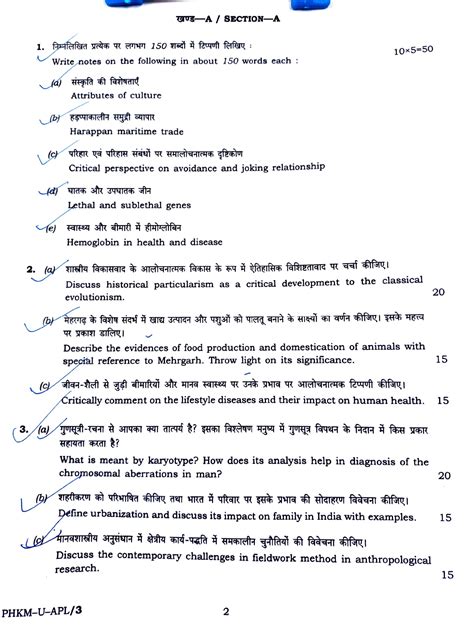 खण्ड—A / SECTION—A
1. निम्नलिखित प्रत्येक पर लगभग 150 शब्दों में टिप्पणी लिखिए :
10×5=50
Write notes on the following in about 150 words each :
(a) संस्कृति की विशेषताएँ
Attributes of culture
(b) हड़प्पाकालीन समुद्री व्यापार
Harappan maritime trade
(c) परिहार एवं परिहास संबंधों पर समालोचनात्मक दृष्टिकोण
Critical perspective on avoidance and joking relationship
(d) घातक और उपघातक जीन
Lethal and sublethal genes
(e) स्वास्थ्य और बीमारी में हीमोग्लोबिन
Hemoglobin in health and disease
2. (a) शास्त्रीय विकासवाद के आलोचनात्मक विकास के रूप में ऐतिहासिक विशिष्टतावाद पर चर्चा कीजिए।
Discuss historical particularism as a critical development to the classical
evolutionism.
20
(b) मेहरगढ़ के विशेष संदर्भ में खाद्य उत्पादन और पशुओं को पालतू बनाने के साक्ष्यों का वर्णन कीजिए। इसके महत्त्व
पर प्रकाश डालिए।
Describe the evidences of food production and domestication of animals with
special reference to Mehrgarh. Throw light on its significance. 15
(c) जीवन-शैली से जुड़ी बीमारियों और मानव स्वास्थ्य पर उनके प्रभाव पर आलोचनात्मक टिप्पणी कीजिए।
Critically comment on the lifestyle diseases and their impact on human health. 15
3. (a) गुणसूत्री-रचना से आपका क्या तात्पर्य है? इसका विश्लेषण मनुष्य में गुणसूत्र विपथन के निदान में किस प्रकार
सहायता करता है?
What is meant by karyotype? How does its analysis help in diagnosis of the
chromosomal aberrations in man? 20
(b) शहरीकरण को परिभाषित कीजिए तथा भारत में परिवार पर इसके प्रभाव की सोदाहरण विवेचना कीजिए।
Define urbanization and discuss its impact on family in India with examples. 15
(c) मानवशास्त्रीय अनुसंधान में क्षेत्रीय कार्य-पद्धति में समकालीन चुनौतियों की विवेचना कीजिए।
Discuss the contemporary challenges in fieldwork method in anthropological
research.
15
PHKM-U-APL/3 2